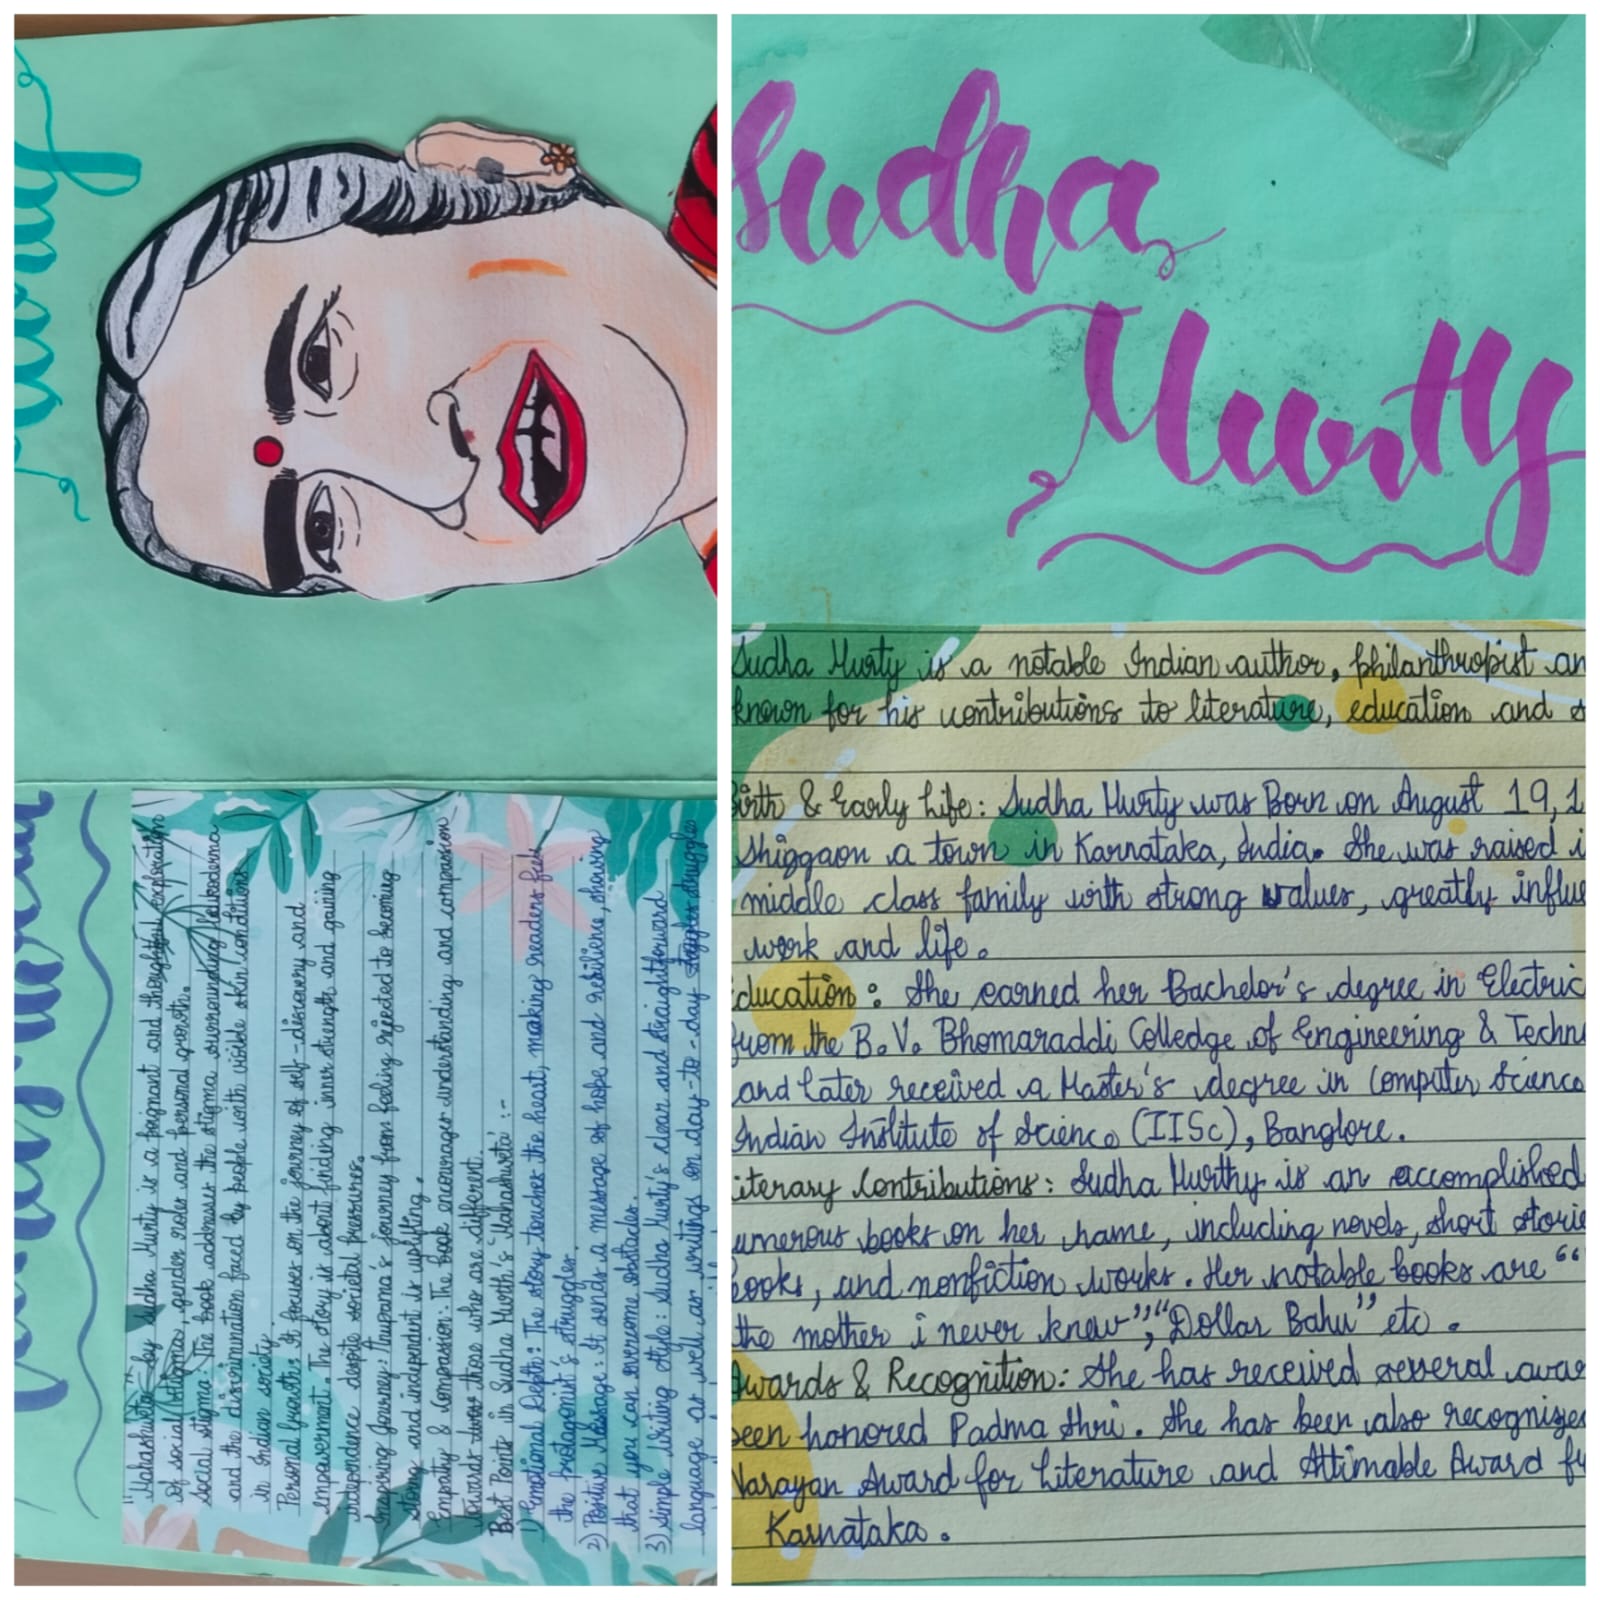 Sudha
Murty
Sudha Murty is a notable Indian author, philanthropist an
known for his contributions to literature, education and s
irth & Early Life: Sudha Murty was Born on August 19, 1
Shiggaon a town in Karnataka, India. She was raised i
middle class family with strong values, greatly influe
work and life.
ducation: She earned her Bachelor's degree in Electric
from the B.V. Bhomaraddi Colledge of Engineering & Techn
and later received a Master's degree in Computer Science
Indian Institute of Science (IISc), Banglore.
iterary Contributions: Sudha Murthy is an accomplished
umerous books on her name, including novels, short storie
books, and nonfiction works. Her notable books are "
the mother i never knew", "Dollar Bahu" etc.
Awards & Recognition: She has received several awar
been honored Padma Shri. She has been also recognizes
Narayan Award for Literature and Attimable Award fr
Karnataka.
"Mahashweta" by Sudha Murty is a poignant and thoughtful exploration
of social stigma, gender roles and personal growth.
Social stigma: The book addresses the stigma surrounding leukoderma
and the discrimination faced by people with visible skin conditions
in Indian society.
Personal Growth: It focuses on the journey of self-discovery and
empowerment. The story is about finding inner strength and gaining
independence despite societal pressures.
Inspiring Journey: Anupama's journey from feeling rejected to becoming
strong and independent is uplifting.
Empathy & Compassion: The book encourages understanding and compassion
towards those who are different.
Best Points in Sudha Murth's 'Mahashweta' :-
1) Emotional Depth: The story touches the heart, making readers feel
the protagonist's struggles.
2) Positive Message: It sends a message of hope and resilience, showing
that you can overcome obstacles.
3) Simple Writing Style: Sudha Murty's clear and straightforward
language as well as writings on day-to-day struggles